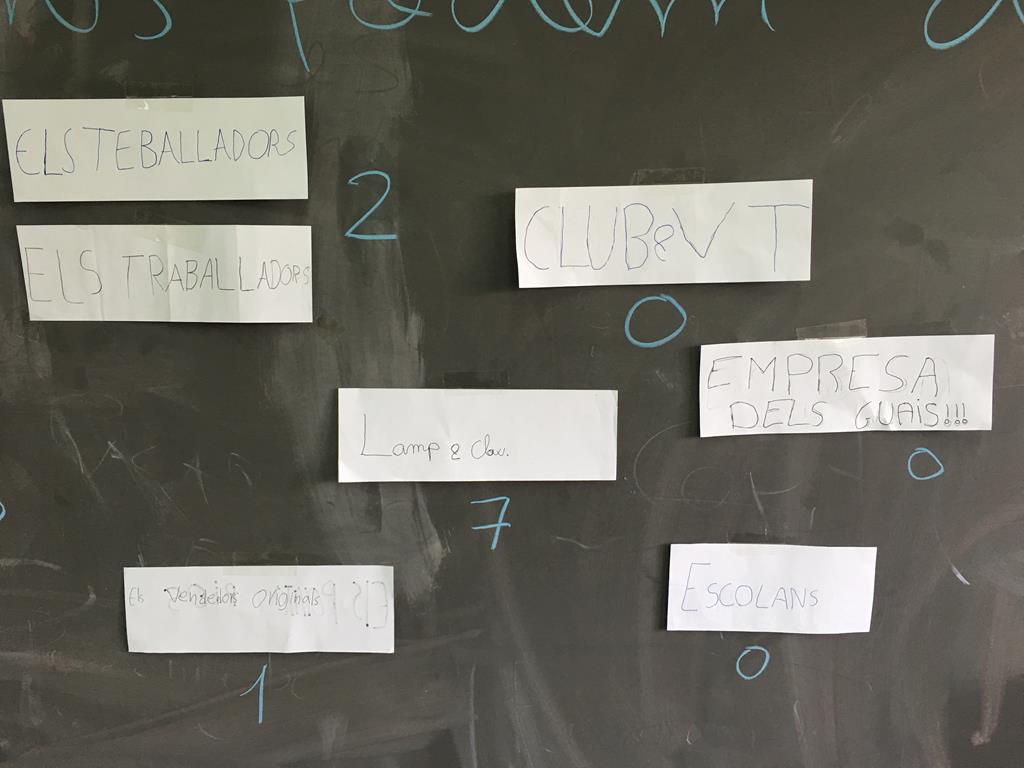 ELS TEBALLADORS
2
ELS TRABALLADORS
CLUB & VT
0
EMPRESA
DELS GUAIS!!!
0
Lamp & Clau.
7
Els venedors originals
1
ESCOLANS
0